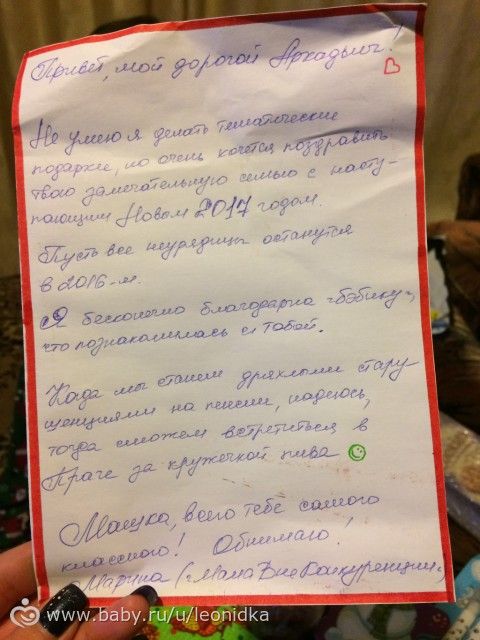 Привет, мой дорогой Аркадьич!
Не умею я делать тематические
подарки, но очень хочется поздравить
твою замечательную семью с насту-
пающим Новым 2017 годом.
Пусть все неурядицы останутся
в 2016-м.
Я бесконечно благодарна «Бэбику»,
что познакомилась с тобой.
Когда мы станем дряхлыми стару-
шенциями на пенсии, надеюсь,
тогда сможем встретиться в
Праге за кружечкой пива
Машка, всего тебе самого
классного! Обнимаю!
Марина («МамаВнеКонкуренции»)
www.baby.ru/u/leonidka